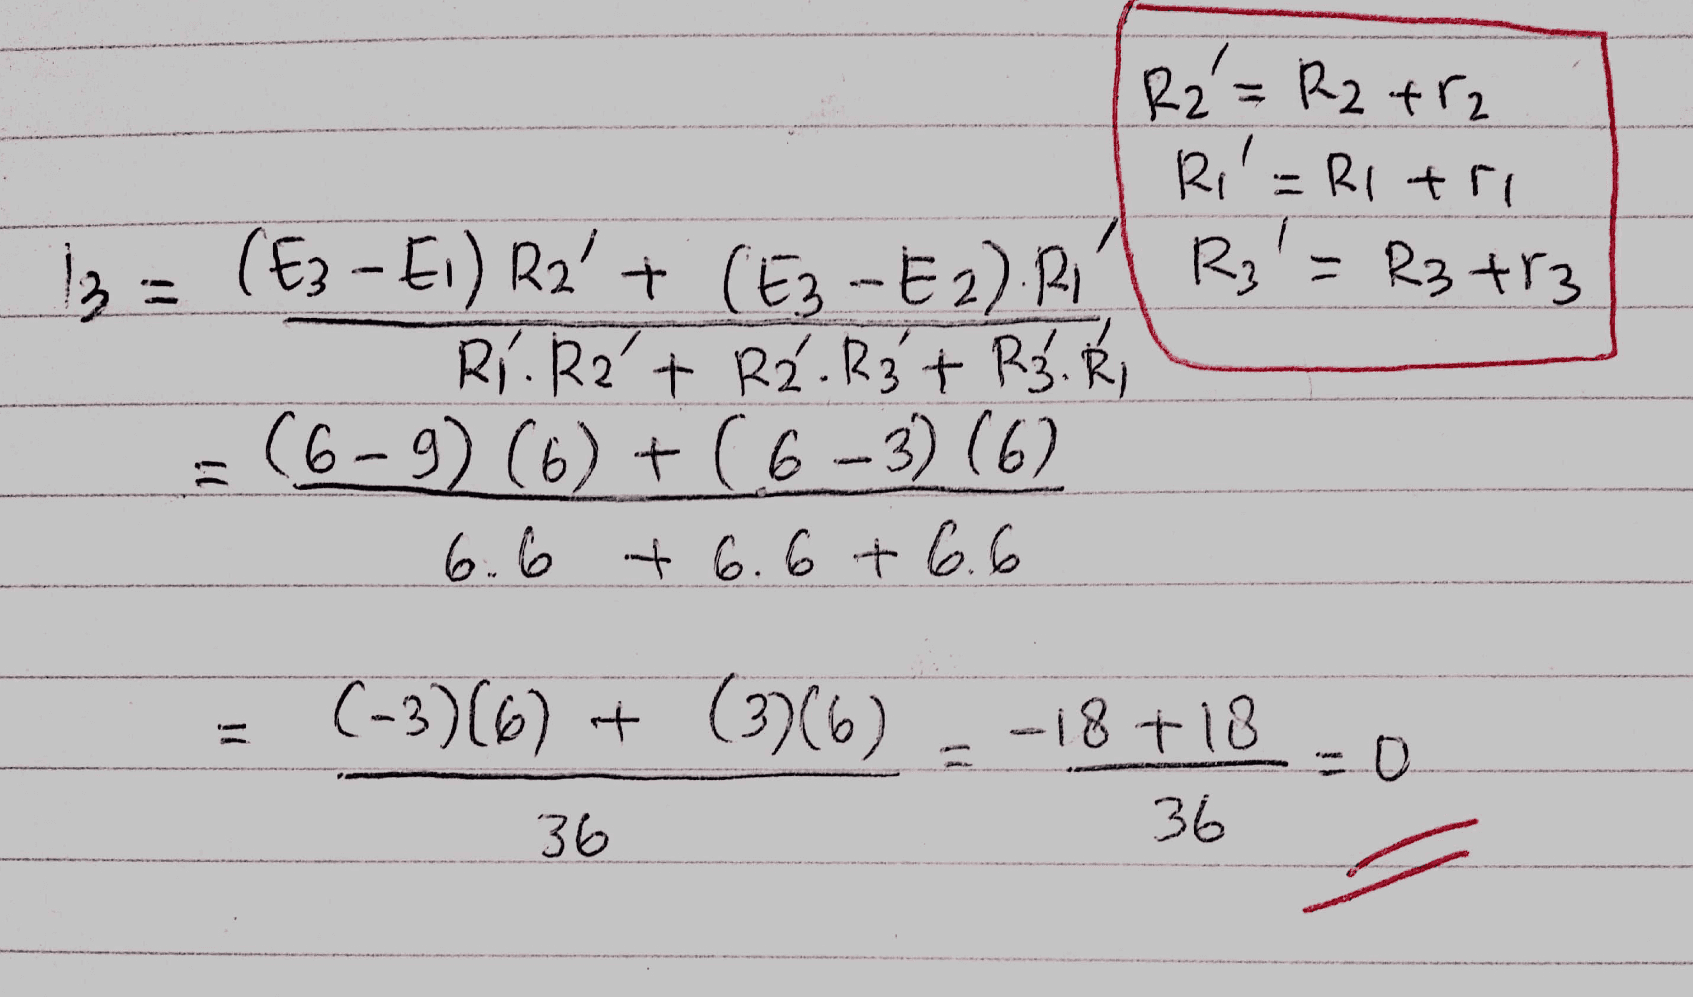 R2' = R2 + r2
R1' = R1 + r1
R3' = R3 + r3
I3 = (E3 - E1) R2' + (E3 - E2).R1'
R1'.R2' + R2'.R3' + R3'.R1'
= (6 - 9) (6) + (6 - 3) (6)
6.6 + 6.6 + 6.6
= (-3)(6) + (3)(6) = -18 + 18 = 0
36 36